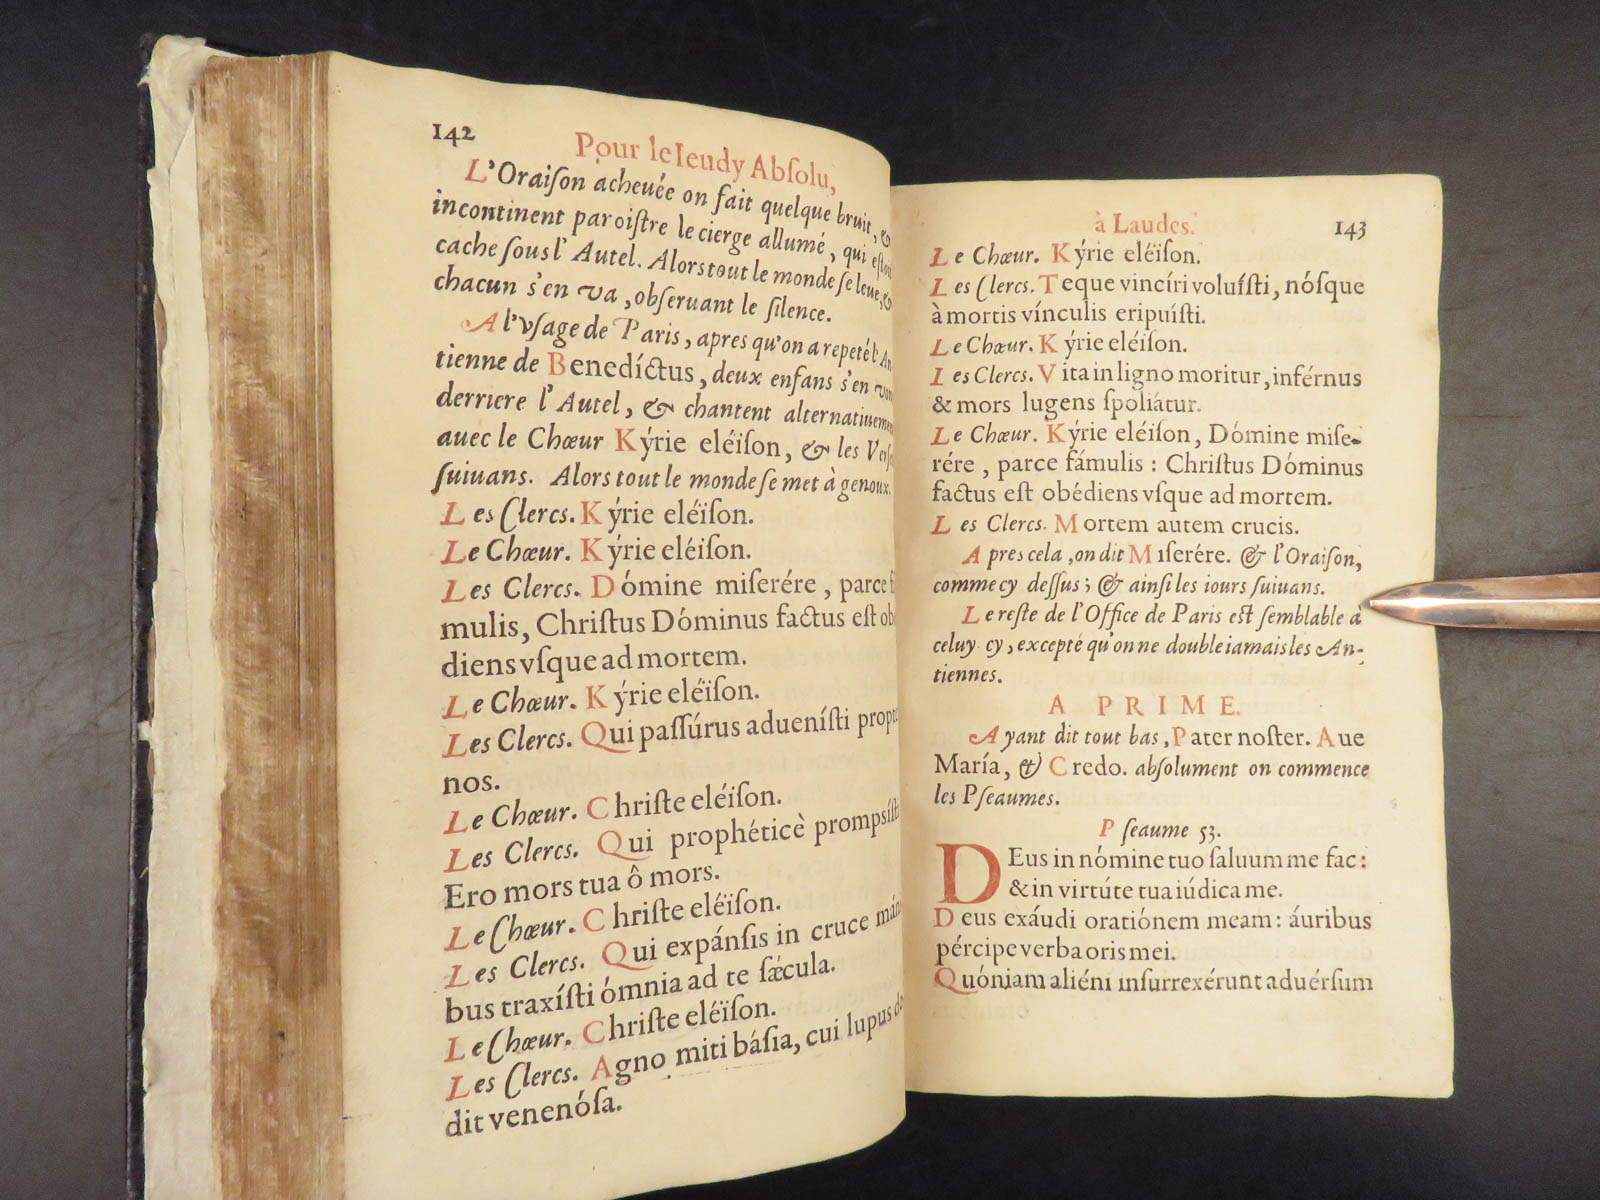 142
Pour le Ieudy Abſolu,
L'Oraiſon acheuée on fait quelque bruit, &
incontinent paroiſtre le cierge allumé, qui eſtoit
cache ſous l'Autel. Alors tout le monde ſe leue, &
chacun s'en va, obſeruant le ſilence.
A l'vſage de Paris, apres qu'on a repeté l'An
tienne de Benedíctus, deux enfans s'en vont
derriere l'Autel, & chantent alternatiuement
auec le Chœur Kýrie eléiſon, & les Verſets
ſuiuans. Alors tout le monde ſe met à genoux.
Les Clercs. Kýrie eléïſon.
Le Chœur. Kýrie eléiſon.
Les Clercs. Dómine miſerére, parce
mulis, Chriſtus Dóminus factus eſt obé
diens vſque ad mortem.
Le Chœur. Kýrie eléïſon.
Les Clercs. Qui paſſúrus aduenísti propter
nos.
Le Chœur. Chriſte eléiſon.
Les Clercs. Qui prophéticè prompsíſti
Ero mors tua ô mors.
Le Chœur. Chriſte eléïſon.
Les Clercs. Qui expánſis in cruce máni
bus traxíſti ómnia ad te ſǽcula.
Le Chœur. Chriſte eléïſon.
Les Clercs. Agno miti báſia, cui lupus de
dit venenóſa.
à Laudes. 143
Le Chœur. Kýrie eléïſon.
Les Clercs. Teque vincíri voluíſti, nóſque
à mortis vínculis eripuíſti.
Le Chœur. Kýrie eléiſon.
Les Clercs. Vita in ligno moritur, inférnus
& mors lugens ſpoliátur.
Le Chœur. Kýrie eléiſon, Dómine miſe-
rére, parce fámulis : Chriſtus Dóminus
factus eſt obédiens vſque ad mortem.
Les Clercs. Mortem autem crucis.
Apres cela, on dit Miſerére. & l'Oraiſon,
comme cy deſſus; & ainſi les iours ſuiuans.
Le reſte de l'Office de Paris eſt ſemblable à
celuy cy, excepté qu'on ne double iamais les An-
tiennes.
A PRIME.
Ayant dit tout bas, Pater noſter. Aue
María, & Credo. abſolument on commence
les Pſeaumes.
Pſeaume 53.
DEus in nómine tuo ſaluum me fac :
& in virtúte tua iúdica me.
Deus exáudi oratiónem meam : áuribus
pércipe verba oris mei.
Quóniam aliéni inſurrexérunt aduérſum